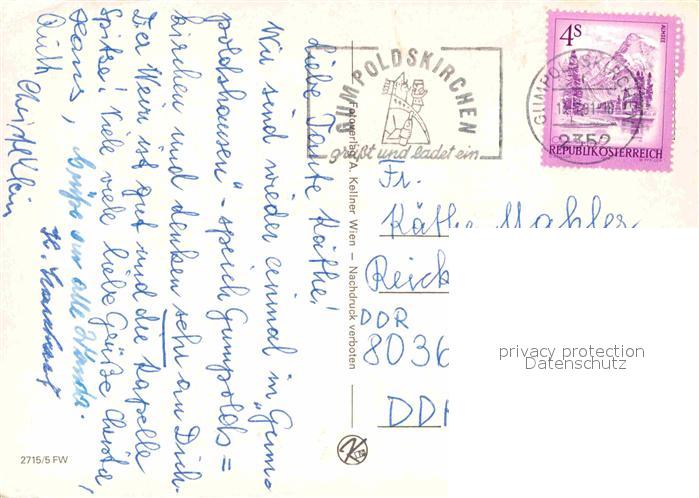 Liebe Tante Käthe!
Wir sind wieder einmal in „Gum-
poldshausen" - sprich Gumpolds=
kirchen und denken sehr an Dich.
Der Wein ist gut und die Kapelle
Spitze! Viele viele liebe Grüße Christa,
Hans,
Ruth
Christl Klein
Grüße an alle
GUMPOLDSKIRCHEN
grüßt und ladet ein
4S
ALMSEE
GUMPOLDSKIRCHEN
2352
REPUBLIK ÖSTERREICH
Fotoverlag A. Kellner Wien — Nachdruck verboten
Fr.
Käthe Mahler
Reick
DDR
8036
DDR
privacy protection
Datenschutz
2715/5 FW